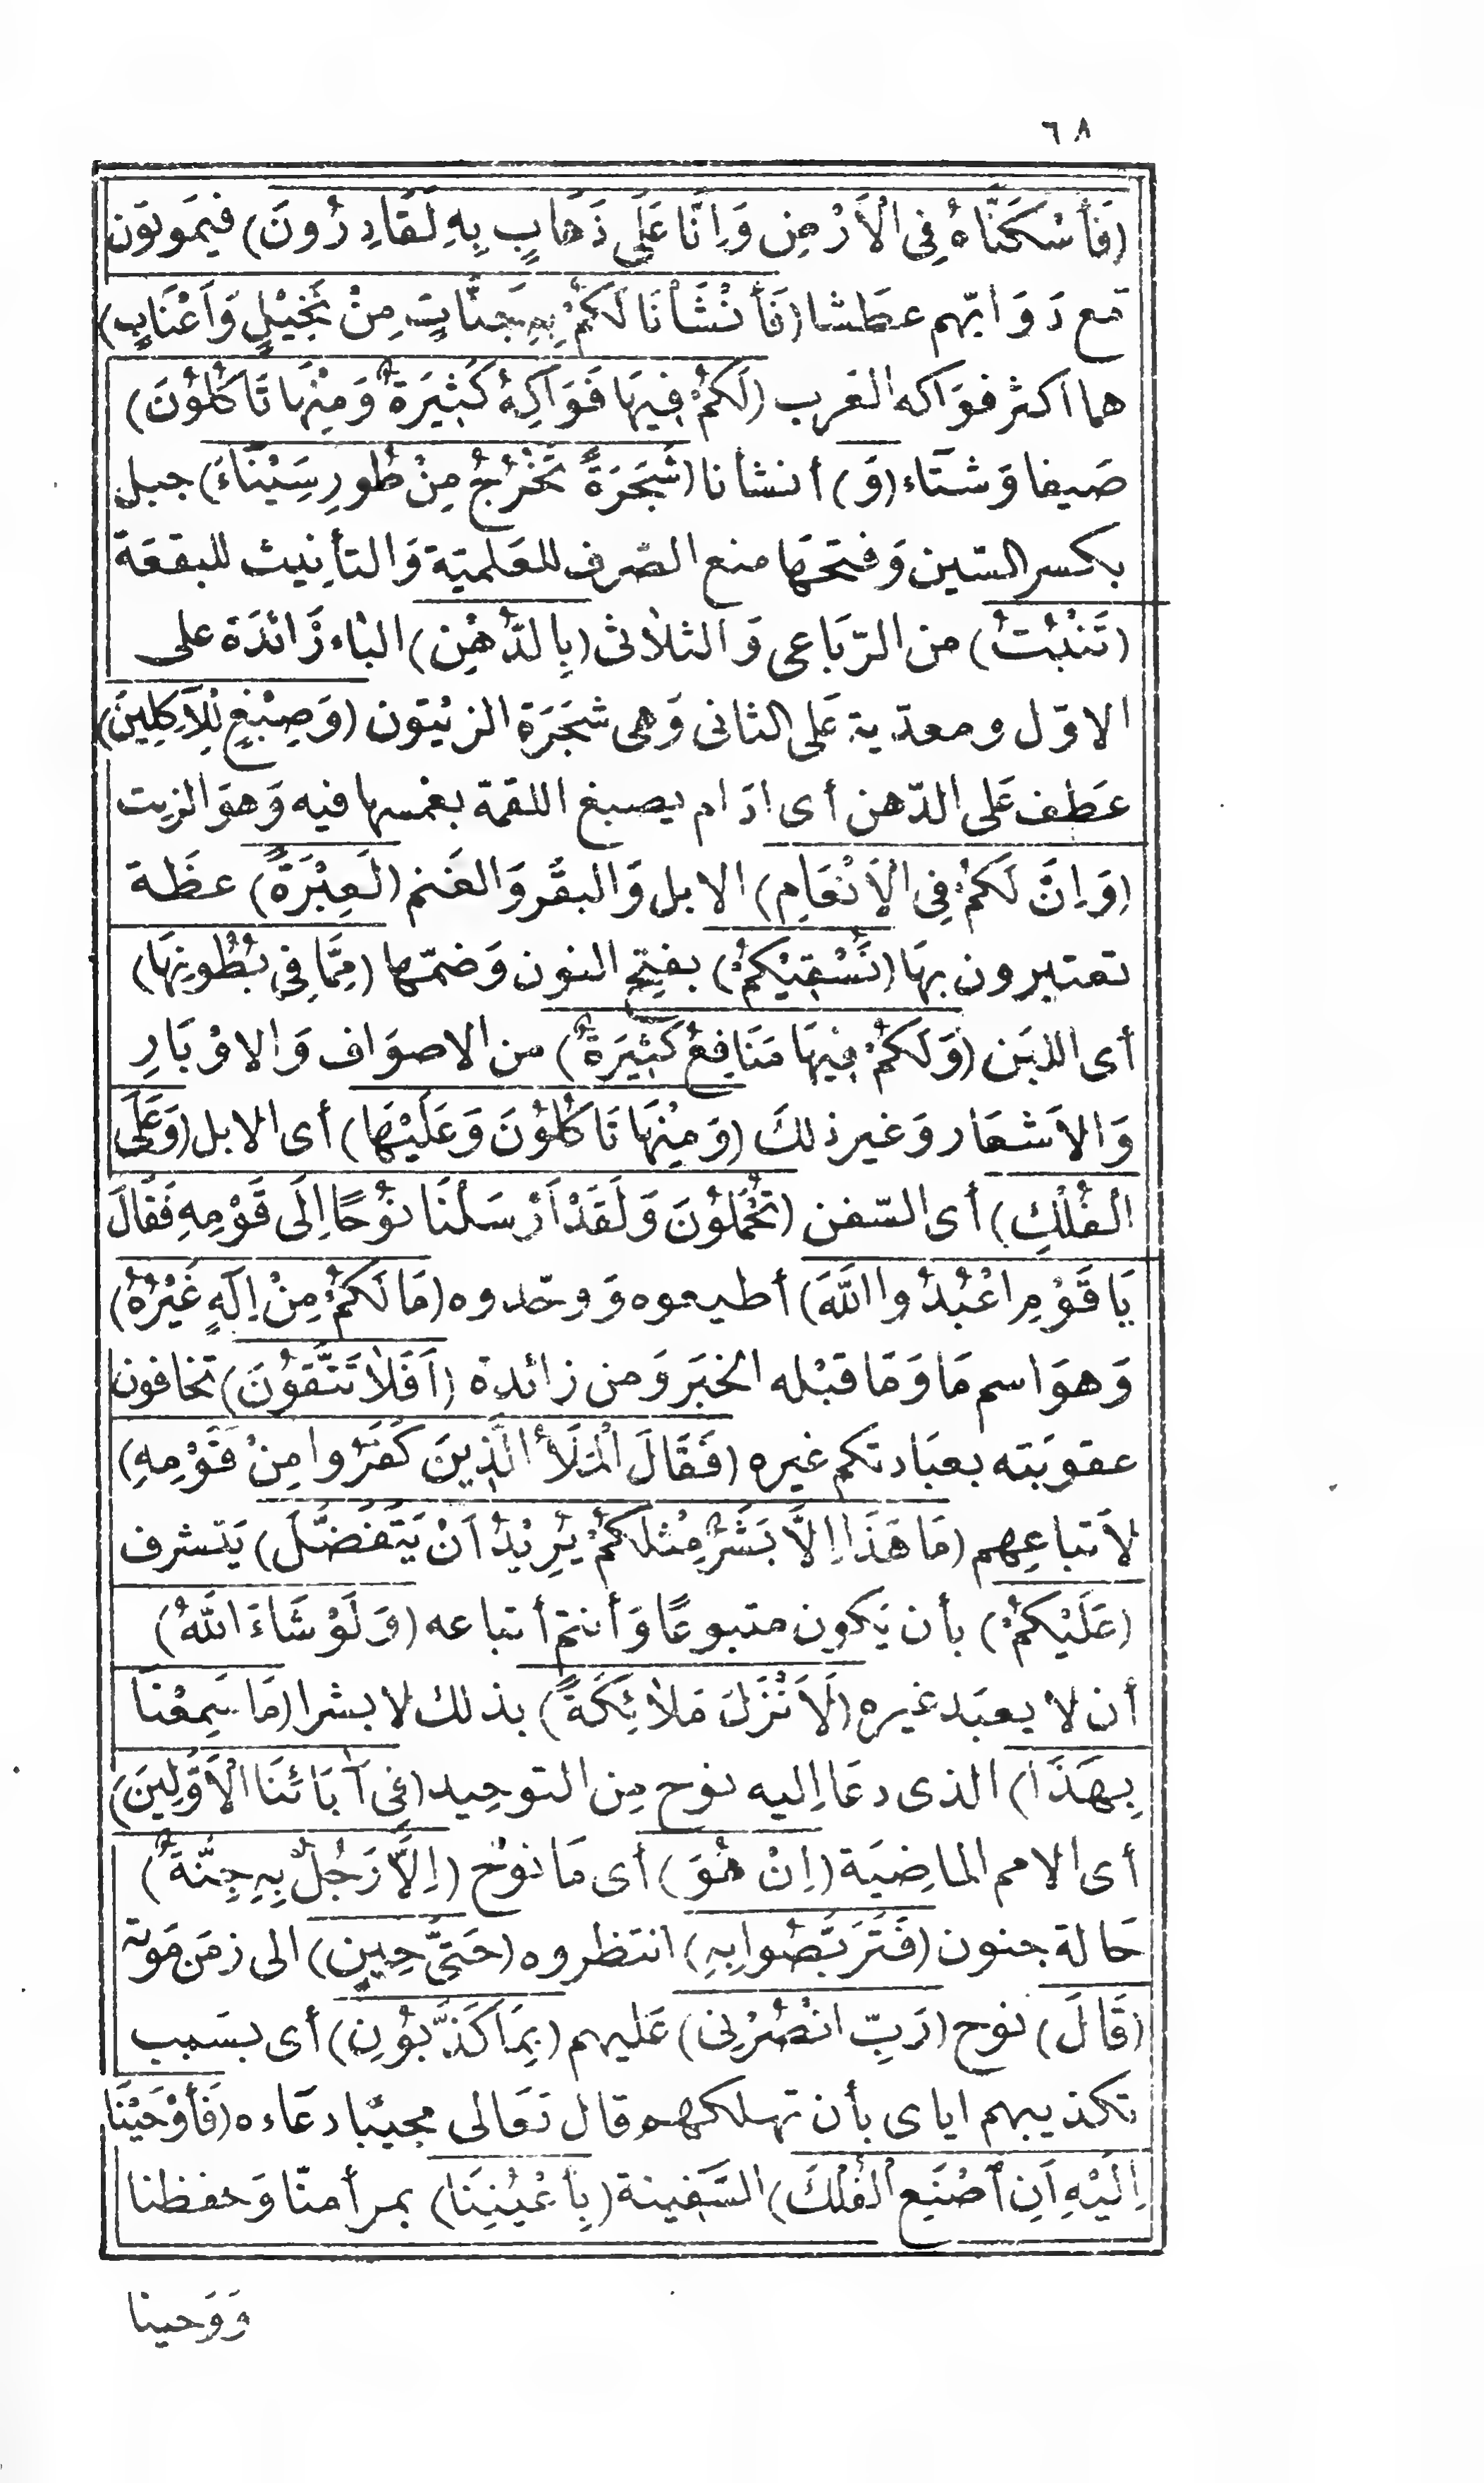 ٦٨
(فَأَسْكَنَّاهُ فِى الْاَرْضِ وَاِنَّا عَلَى ذَهَابٍ بِهِ لَقَادِرُونَ) فيَموتوَن
مَع دَوَابّهم عطَشا (فَأَنْشَأْنَا لَكُمْ بِهِ جَنَّاتٍ مِنْ نَخِيْلٍ وَاَعْنَابٍ)
هما اكثر فوَاكه العَرب (لَكُمْ فِيهَا فَوَاكِهُ كَثِيرَةٌ وَمِنْهَا تَأْكُلُوْنَ)
صَيفا وَشتَاء (وَ) أنشأنا (شَجَرَةً تَخْرُجُ مِنْ طُورِ سَيْنَآءَ) جبل
بكسر السّين وَفتحهَا منع الصّرف للعَلميّة وَالتأنِيث للبقعَة
(تَنْبُتُ) من الرّبَاعى وَالثلاثى (بِالدُّهْنِ) الباء زَائدَة على
الاوّل ومعدّية عَلى الثانى وَهى شجَرَة الزيْتون (وَصِبْغٍ لِلْآكِلِينَ)
عَطف عَلى الدّهن أى ادَام يصبغ اللقمَة بغمسها فيه وَهوَ الزيت
(وَاِنَّ لَكُمْ فِى الْاَنْعَامِ) الابل وَالبقَر وَالغَنم (لَعِبْرَةً) عظَة
تعتبرون بهَا (نَسْقِيْكُمْ) بفتح النون وَضمّها (مِمَّا فِى بُطُونِهَا)
أى اللبَن (وَلَكُمْ فِيهَا مَنَافِعُ كَثِيرَةٌ) من الاصوَاف وَالاوْبَارِ
وَالاَشعَار وَغير ذلكَ (وَمِنْهَا تَأْكُلُوْنَ وَعَلَيْهَا) أى الابل (وَعَلَى
الْفُلْكِ) أى السّفن (تُحْمَلُوْنَ وَلَقَدْ اَرْسَلْنَا نوُحًا اِلَى قَوْمِهِ فَقَالَ
يَا قَوْمِ اعْبُدُوا اللَّهَ) أطيعوه وَوحّدوه (مَا لَكُمْ مِنْ اِلَهٍ غَيْرُهُ)
وَهوَ اسم مَا وَمَا قبْله الخبَر وَمن زائدة (اَفَلَا تَتَّقوُنَ) تخافون
عقوبَته بعبَادتكم غيره (فَقَالَ الْمَلَأُ الَّذِينَ كَفَرُوا مِنْ قَوْمِهِ)
لاَتباعِهم (مَا هَذَا اِلَّا بَشَرٌ مِثْلُكُمْ يُرِيْدُ اَنْ يَتَفَضَّلَ) يَتشرف
(عَلَيْكُمْ) بأن يَكون متبوعًا وَأنتم أتباعه (وَلَوْ شَاءَ اللَّهُ)
أن لا يعبَد غيره (لَاَنْزَلَ مَلَائِكَةً) بذلك لا بشرا (مَا سَمِعْنَا
بِهَذَا) الذى دعَا اِليه نوح مِن التوحِيد (فِى آبَائنَا الْاَوَّلِينَ)
أى الامم الماضِيَة (اِنْ هُوَ) أى مَا نوُح (اِلَّا رَجُلٌ بِهِ جِنَّةٌ)
حَالة جنون (فَتَرَبَّصُوا بِهِ) انتظروه (حَتَّى حِينٍ) الى زمَن مَوته
(قَالَ) نوح (رَبِّ انْصُرْنِى) عَليهم (بِمَا كَذَّبُوْنِ) أى بسَبب
تكذيبهم اياى بأن تهلكهم قال تعَالى مجيْبا دعَاءه (فَأَوْحَيْنَا
اِلَيْهِ اَنِ اصْنَعِ الْفُلْكَ) السَّفِينة (بِأَعْيُنِنَا) بمرأى منّا وَحفظنا
وَوَحينا